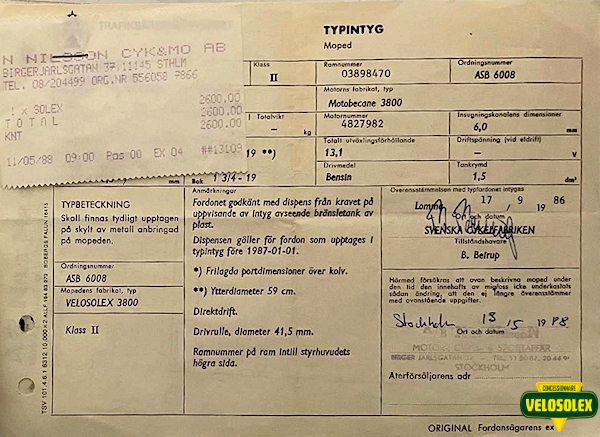 N NILSSON CYK&MO AB
BIRGERJARLSGATAN 37,11145 STHLM
TEL. 08/204499 ORG.NR 556058 7866
2600.00
1 x SOLEX 2600.00
TOTAL 2600.00
KNT
11/05/88 09:00 Pas 00 EX 04 ##13109
TYPINTYG
Moped
Klass
II
Ramnummer
03898470
Ordningsnummer
ASB 6008
Motorns fabrikat, typ
Motobecane 3800
Totalvikt
– kg
Motornummer
4827982
Insugningskanalens dimensioner
6,0 mm
19 **)
Totalt utväxlingsförhållande
13,1
Driftspänning (vid eldrift)
– V
Bak 1 3/4 - 19
Drivmedel
Bensin
Tankrymd
1,5 dm³
TYPBETECKNING
Skall finnas tydligt upptagen
på skylt av metall anbringad
på mopeden.
Ordningsnummer
ASB 6008
Mopedens fabrikat, typ
VELOSOLEX 3800
Klass II
Anmärkningar
Fordonet godkänt med dispens från kravet på
uppvisande av intyg avseende bränsletank av
plast.
Dispensen gäller för fordon som upptages i
typintyg före 1987-01-01.
*) Frilagda portdimensioner över kolv.
**) Ytterdiameter 59 cm.
Direktdrift.
Drivrulle, diameter 41,5 mm.
Ramnummer på ram intill styrhuvudets
högra sida.
Överensstämmelsen med typintyget intygas
Lomma 17 / 9 1986
Ort och datum
SVENSKA CYKELFABRIKEN
Tillståndshavare
B. Beirup
Härmed försäkras att ovan beskrivna moped under
den tid den innehafts av mig/oss icke underkastats
sådan ändring, att den ej längre överensstämmer
med ovanstående uppgifter.
Stockholm 13/5 1988
Ort och datum
BIRGER JARLSGATAN
STOCKHOLM
Återförsäljarens adr
ORIGINAL Fordonsägarens ex
CONCESSIONNAIRE
VELOSOLEX